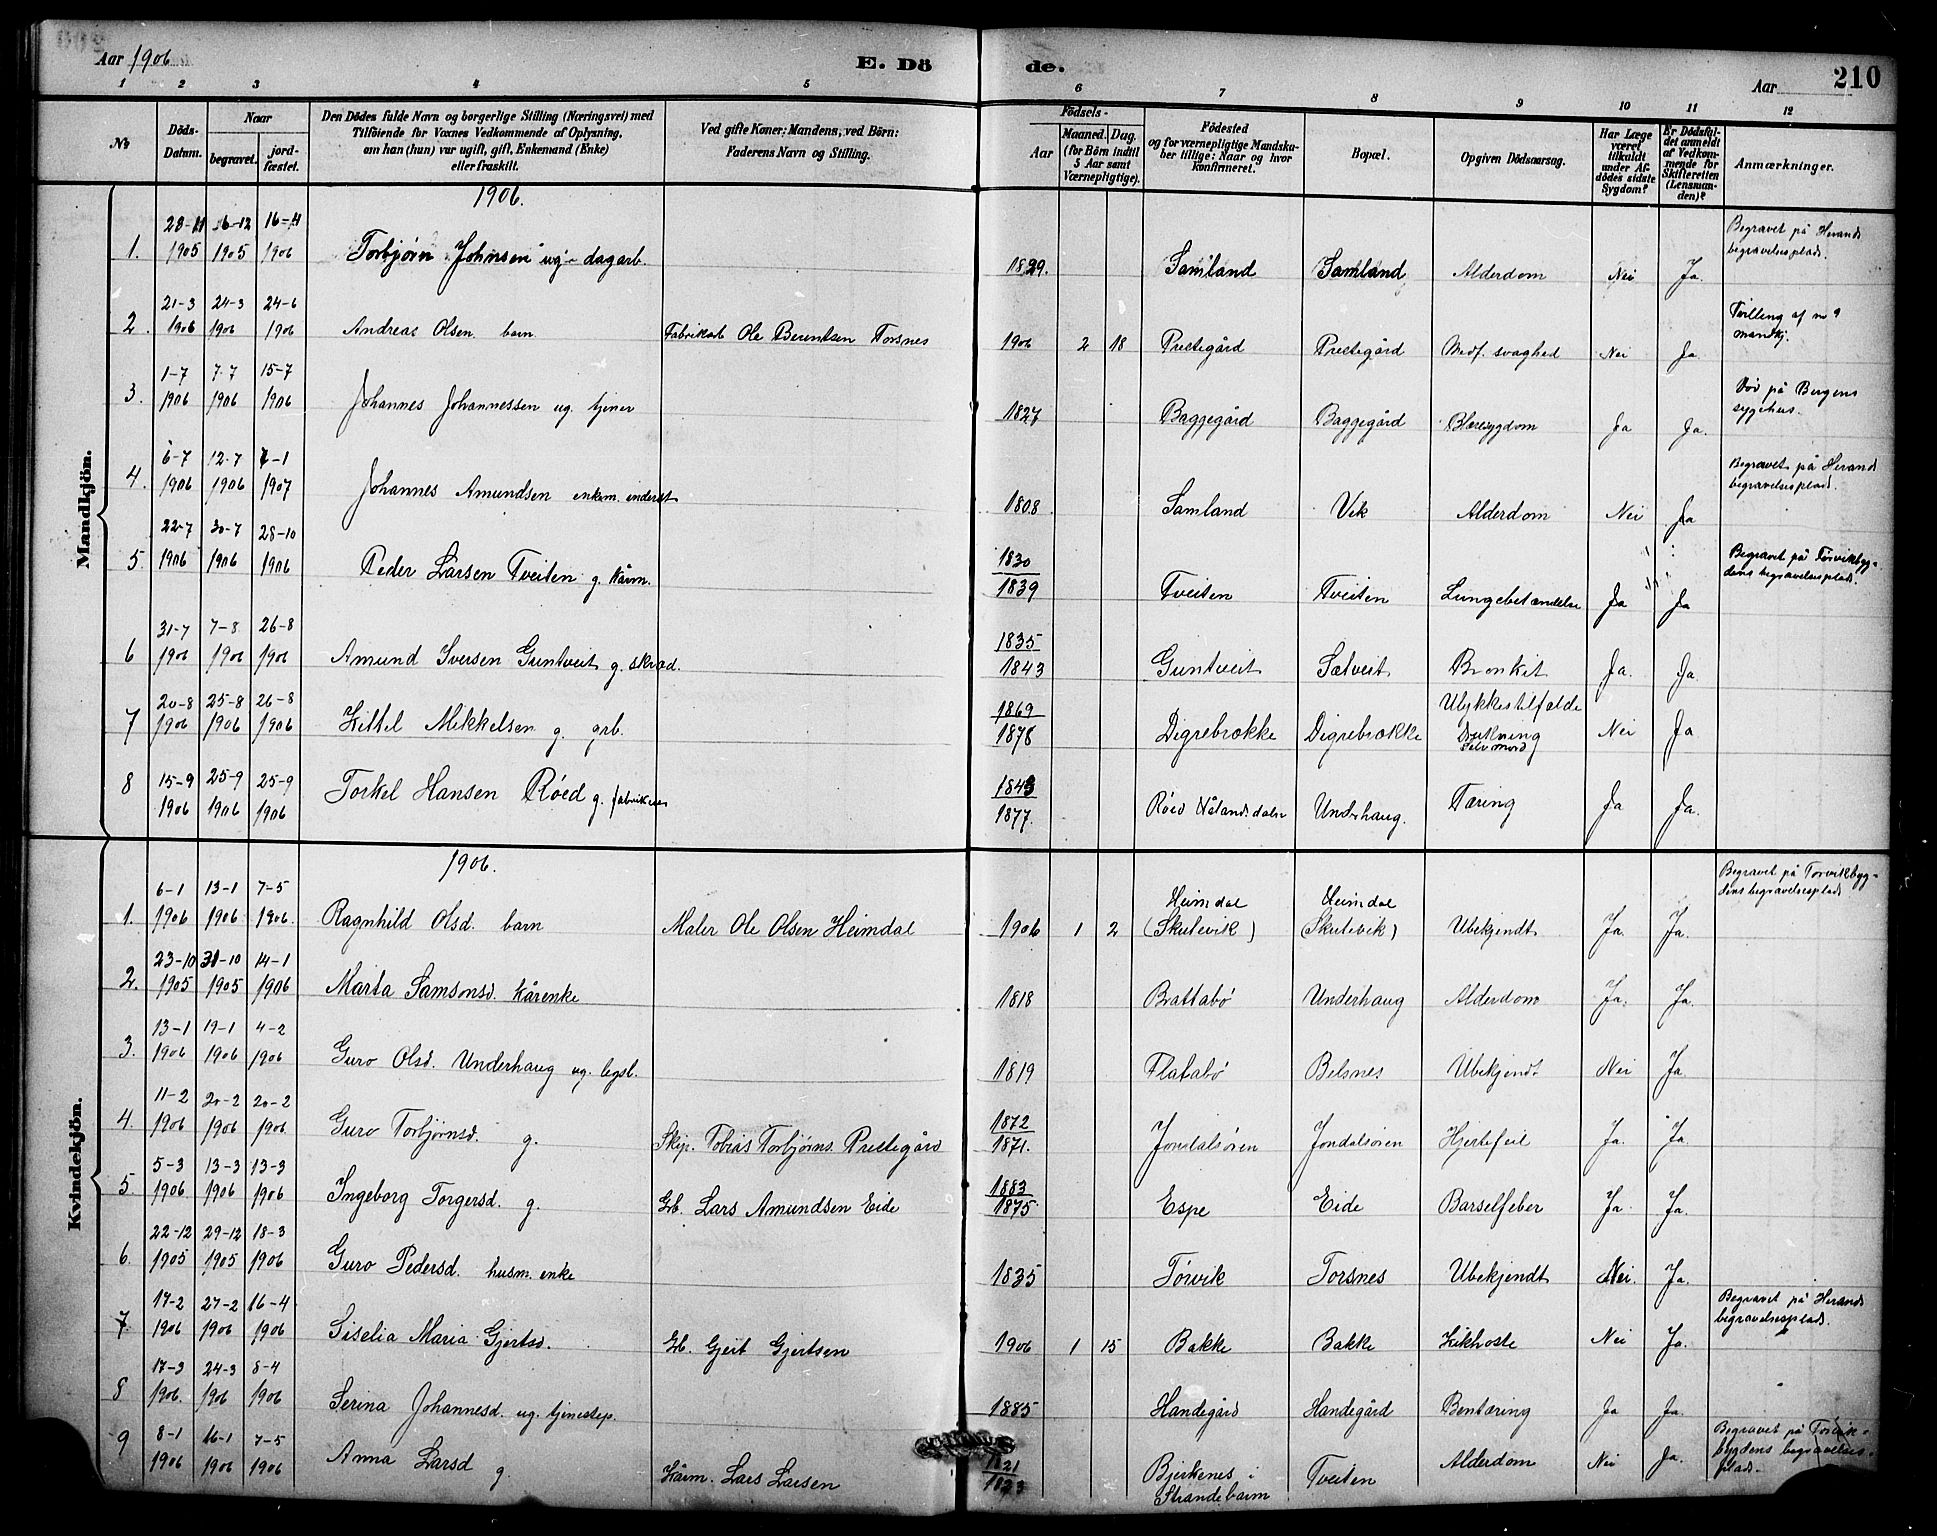 Aar 1906
E. Dö de.
Aar 210
1 2 3 4 5 6 7 8 9 10 11 12
No
Döds-Datum.
Naar
begravet.
jord-fæstet.
Den Dödes fulde Navn og borgerlige Stilling (Næringsvei) med
Tilföiende for Voxnes Vedkommende af Oplysning,
om han (hun) var ugift, gift, Enkemand (Enke)
eller fraskilt.
Ved gifte Koner: Mandens, ved Börn:
Faderens Navn og Stilling.
Födsels-
Aar
Maaned. Dag.
(for Börn indtil
5 Aar samt
Værnepligtige).
Födested
og for værnepligtige Mandska-
ber tillige: Naar og hvor
konfirmeret.
Bopæl.
Opgiven Dödsaarsag.
Har Læge
været
tilkaldt
under Af-
dödes sidste
Sygdom?
Er Dödsfal-
det anmeldt
af Vedkom-
mende for
Skifteretten
(Lensman-
den)?
Anmærkninger.
Mandkjön.
1906.
1. 28-11 1905 6-12 1905 16-4 1906 Torbjørn Johnsen ug. dagarb. 1829. Samland Samland Alderdom Nei Ja. Begravet på Herands begravelsesplads.
2. 21-3 1906 24-3 1906 24-6 1906 Andreas Olsen barn. Fabrikarb Ole Berentsen Torsnes 1906 2 18 Prestegård Prestegård Medf. svaghed Nei Ja. Tvilling af no 9 mandkj.
3. 1-7 1906 7-7 1906 15-7 1906 Johannes Johannessen ug. tjener 1827 Baggegård Baggegård Blæresygdom Ja Ja. Død på Bergens sygehus.
4. 6-7 1906 12-7 1906 1-1 1907 Johannes Amundsen enkem. inderst 1808. Samland Vik Alderdom Nei Ja Begravet på Herand begravelsesplads.
5. 22-7 1906 30-7 1906 28-10 1906 Peder Larsen Tveiten g. kårm. 1830 1839 Tveiten Tveiten Lungebetændelse Ja Ja Begravet på Tørvikbyg-dens begravelsesplads.
6 31-7 1906 7-8 1906 26-8 1906 Amund Iversen Guntveit g. skræd. 1835 1843 Guntveit Sætveit Bronkit Ja. Ja.
7 20-8 1906 25-8 1906 26-8 1906 Kittel Mikkelsen g. grb. 1869 1878 Digrebrække Digrebrække Ulykkestilfælde Drukning Selvmord Nei Ja
8 15-9 1906 25-9 1906 25-9 1906 Torkel Hansen Røed g. 1843 1877. Røed Underhaug. Tæring Ja Ja.
Kvindekjön.
1906.
1. 6-1 1906 13-1 1906 7-5 1906. Ragnhild Olsd. barn Maler Ole Olsen Heimdal 1906 1 2 Heimdal (Skutevik) Heimdal (Skutevik) Ubekjendt Ja. Ja. Begravet på Torvikbyg-dens begravelsesplads
2. 23-10 1905 31-10 1905 14-1 1906 Marta Samsonsd. kårenke 1818 Brattabø Underhaug Alderdom Ja. Ja.
3. 13-1 1906 19-1 1906 4-2 1906 Guro Olsd. Underhaug ug. legsl. 1819 Flatabø Belsnes Ubekjendt Nei Ja
4. 11-2 1906 20-2 1906 20-2 1906 Guro Torbjørnsd. g. Skip. Tobias Torbjørns. Prestegård 1872 1871. Jondalsøren Jondalsøren Hjertefeil Ja. Ja.
5. 5-3 1906 13-3 1906 13-3 1906 Ingeborg Torgersd. g. Grb. Lars Amundsen Eide 1883 1875. Espe Eide Barselfeber Ja. Ja.
6. 22-12 1905 29-12 1905 18-3 1906 Guro Pedersd. husm. enke 1835 Tørvik Torsnes Ubekjendt Nei. Ja.
7 17-2 1906 27-2 1906 16-4 1906 Siselia Maria Gjertsd. Grb. Gjert Gjertsen 1906 1 15 Bakke Bakke Kikhoste Nei Ja. Begravet på Herands begravelsesplads.
8 17-3 1906. 24-3 1906 8-4 1906 Serina Johannesd. ug. tjenestep. 1885 Handegård Handegård Bentæring Ja Ja.
9 8-1 1906 16-1 1906 7-5 1906 Anna Larsd g. Kårm. Lars Larsen 1821 1823 Bjerkenes i Strandebarm Tveiten Alderdom Nei Ja. Begravet på Torvik-bygdens begravelses-plads.